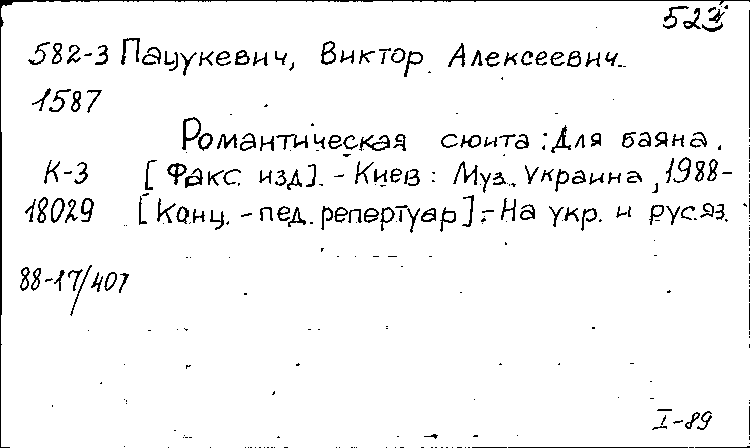 523
582-3 Пацукевич, Виктор Алексеевич.
1587
Романтическая сюита: Для баяна.
К-3 [Факс. изд]. - Киев: Муз. Украина, 1988-
18029 [Конц. - пед. репертуар]. - На укр. и рус. яз.
88-17/407
I-89